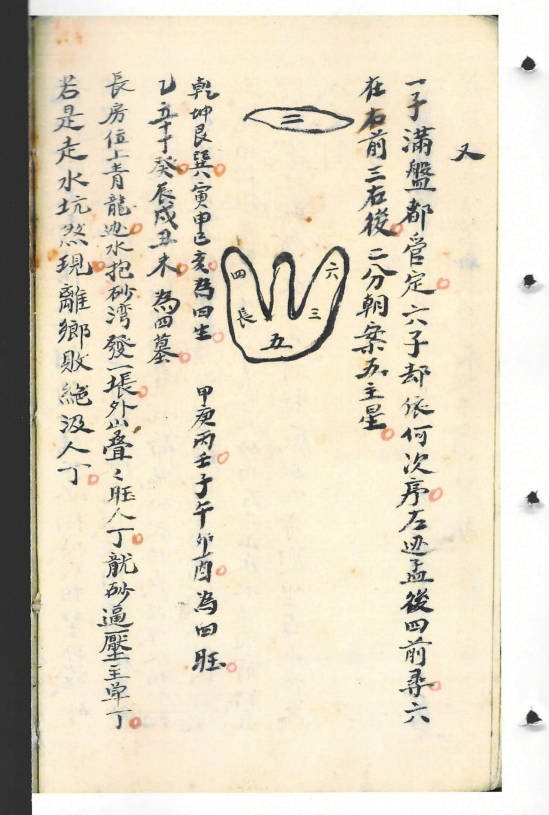 又
一子滿盤都管定六子却依何次序左边孟後四前尋六
在右前三右後二分朝案五主星
二
四
長
五
三
六
乾坤艮巽寅申巳亥為四生 甲庚丙壬子午卯酉為四旺
乙辛丁癸辰戌丑未為四墓
長房位上青龍边水抱砂湾發一塲外山叠〻旺人丁龍砂逼壓主单丁
若是走水坑煞現離鄉敗絶没人丁